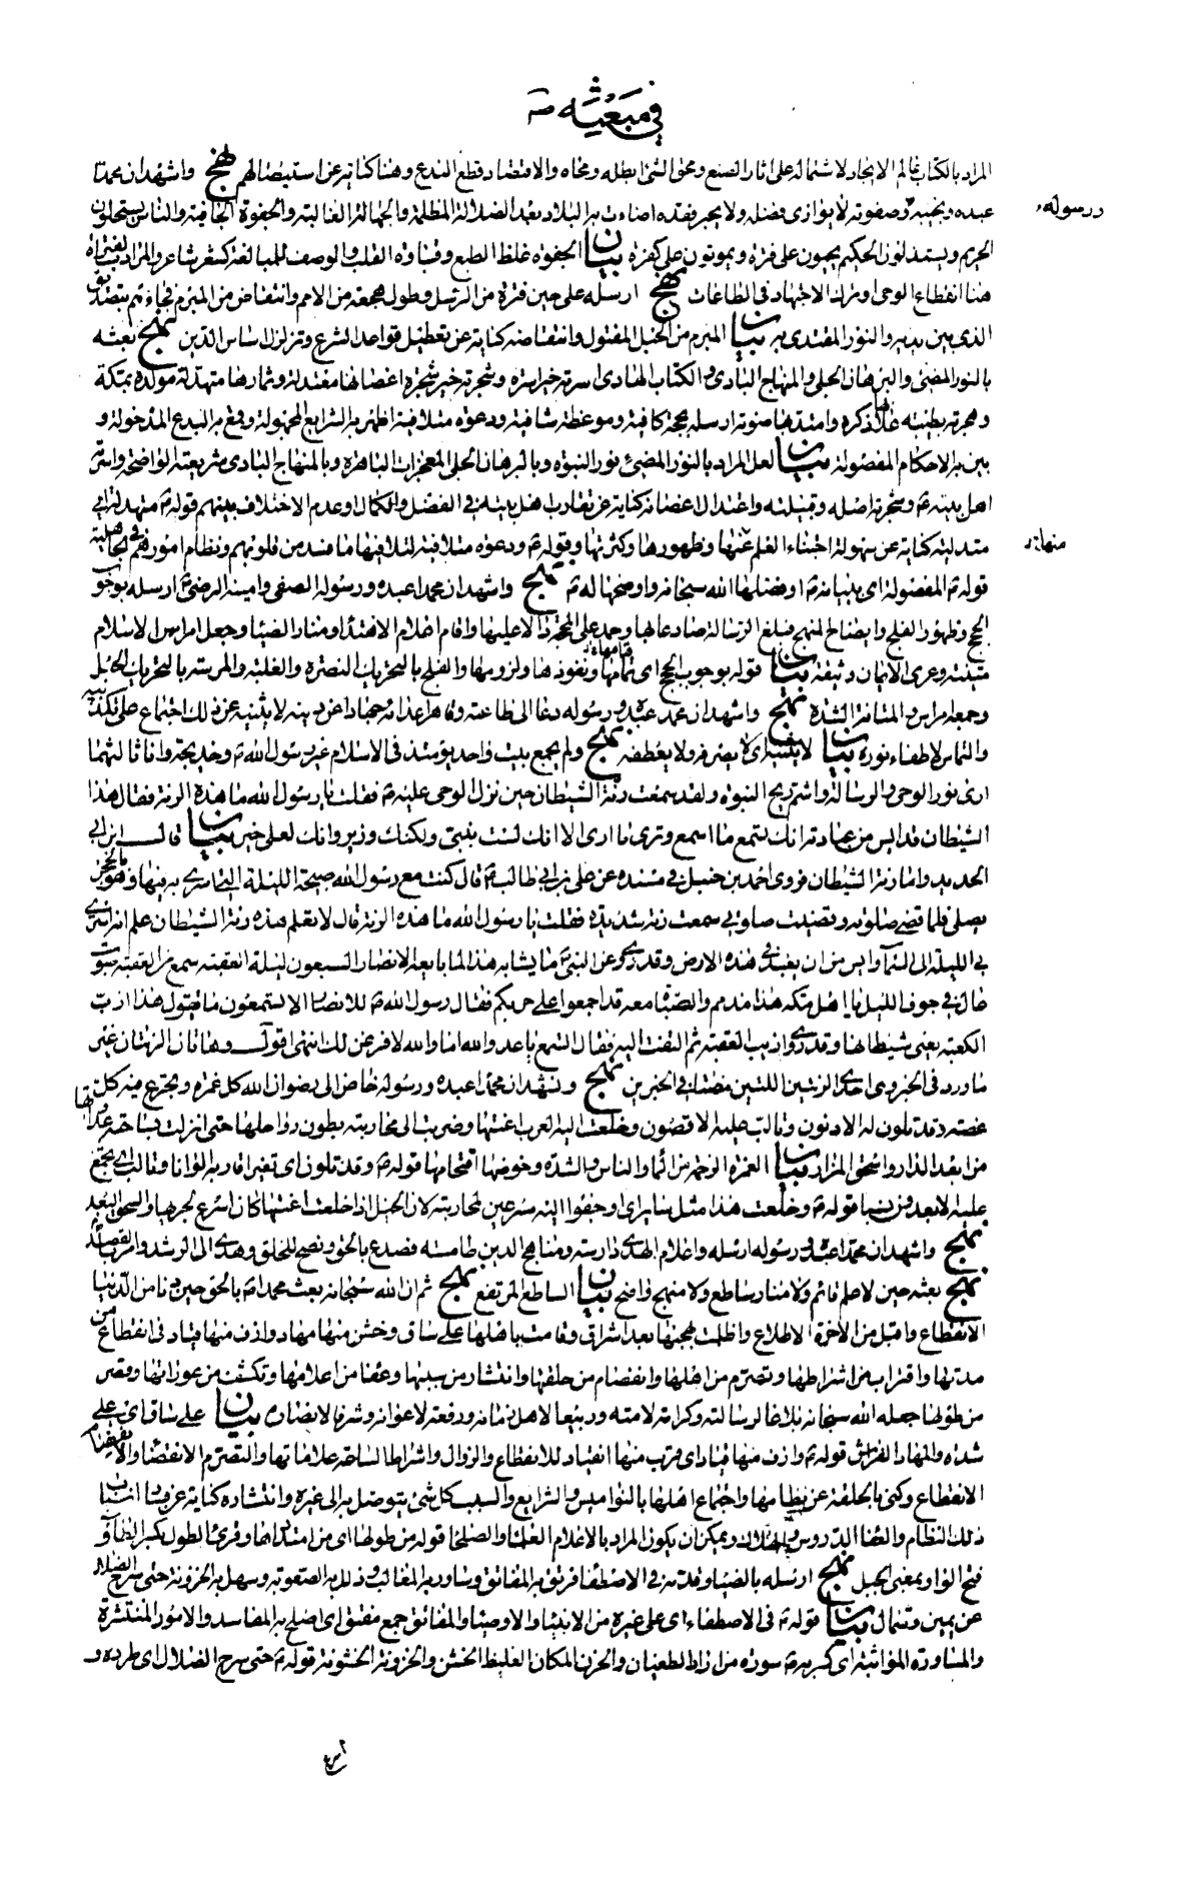 في مبعثه ص
المراد بالكتاب عالم الايجاد لاشتماله على اثار الصنع ومحق الشئ ابطله ومحاه والاقتصاد قطع البدع وهنا كناية عن استيصالهم نهج واشهد ان محمدا
ورسوله
عبده ونجيبه وصفوته لا يؤازى فضله ولا يجبر فقده اضاءت به البلاد بعد الضلالة المظلمة والجهالة الغالبة والجفوة الجافية والناس يستحلون
الحريم ويستذلون الحكيم يحيون على فترة ويموتون على كفرة بيان الجفوة غلظ الطبع وقساوة القلب والوصف للمبالغة كشعر شاعر والمراد بالفترة
هنا انقطاع الوحى او ترك الاجتهاد في الطاعات نهج ارسله على حين فترة من الرسل وطول هجعة من الامم وانتقاض من المبرم فجاءهم بتصديق
الذى بين يديه والنور المقتدى به بيان المبرم من الحبل المفتول وانتقاضه كناية عن تعطيل قواعد الشرع وتزلزل اساس الدين نهج بعثه
بالنور المضئ والبرهان الجلى والمنهاج البادى والكتاب الهادى اسرته خير اسرة وشجرته خير شجرة اغصانها معتدلة وثمارها متهدلة مولده بمكة
وهجرته بطيبة علا بها ذكره وامتد بها صوته ارسله بحجة كافية وموعظة شافية ودعوة متلافية اظهر به الشرايع المجهولة وقمع به البدع المدخولة و
بين به الاحكام المفصولة بيان لعل المراد بالنور المضئ نور النبوة وبالبرهان الجلى المعجزات الباهرة وبالمنهاج البادى شريعته الواضحة واسرته
اهل بيته ع وشجرته اصله وقبيلته واعتدال اغصانه كناية عن تقارب اهل بيته في الفضل والكمال او عدم الاختلاف بينهم قوله ع متهدلة اى
منها
متدلية كناية عن سهولة اجتناء العلم عنها وظهورها وكثرتها وقوله ع ودعوة متلافية لتلافيها ما فسد من قلوبهم ونظام امورهم في الجاهلية
قوله ع المفصولة اى ببيانه ع او فصلها الله سبحانه واوضحها له ع نهج واشهد ان محمدا عبده ورسوله الصفى وامينه الرضى ص ارسله بوجوب
الحجج وظهور الفلج وايضاح المنهج فبلغ الرسالة صادعا بها وحمل على المحجة دالا عليها واقام اعلام الاهتداء ومنار الضياء وجعل امراس الاسلام
متينة وعرى الايمان وثيقة بيان قوله بوجوب الحجج اى تمامها ونفوذها ولزومها والفلج بالتحريك النصرة والغلبة والمرسة بالتحريك الحبل
وجمعه امراس والمتانة الشدة نهج واشهد ان محمد عبده ورسوله دعا الى طاعته وقاهر اعدائه جهادا عن دينه لا يثنيه عن ذلك اجتماع على تكذيبه
والتماس لاطفاء نوره بيان لا يثنيه اى لا يصرفه ولا يعطفه نهج ولم يجمع بيت واحد يومئذ في الاسلام غير رسول الله ص وخديجة وانا ثالثهما
ارى نور الوحى والرسالة واشم ريح النبوة ولقد سمعت رنة الشيطان حين نزل الوحى عليه ص فقلت يا رسول الله ما هذه الرنة فقال هذا
الشيطان قد ايس من عبادته انك تسمع ما اسمع وترى ما ارى الا انك لست بنبى ولكنك وزير وانك لعلى خير بيان قال ابن ابي
الحديد واما رنة الشيطان فروى احمد بن حنبل في مسنده عن على بن ابي طالب ع قال كنت مع رسول الله صبيحة الليلة التى اسرى به فيها وهو بالحجر
يصلى فلما قضى صلوته وقضيت صلوتى سمعت رنة شديدة فقلت يا رسول الله ما هذه الرنة قال الا تعلم هذه رنة الشيطان علم انه اسرى
بى الليلة الى السماء وايس من ان يعبد في هذه الارض وقد روى عن النبي ص ما يشابه هذا لما بايعه الانصار السبعون ليلة العقبة سمع من العقبة صوت
عال في جوف الليل يا اهل مكة هذا مذمم والصباة معه قد اجمعوا على حربكم فقال رسول الله ص للانصار الا تستمعون ما يقول هذا ازب
الكعبة يعنى شيطانها وقد روى ازيب العقبة ثم التفت اليه فقال اتسمع يا عدو الله اما والله لافرغن لك انتهى اقول وهاتان الرنتان غير
ما ورد فى الخبر وهى احدى الرنتين اللتين مضتا في الخبرين نهج ونشهد ان محمدا عبده ورسوله خاض الى رضوان الله كل غمرة وتجرع فيه كل
غصة وقد تلون له الادنون وتالب عليه الاقصون وخلعت اليه العرب اعنتها وضربت الى محاربته بطون رواحلها حتى انزلت بساحته عداوتها
من ابعد الدار واسحق المزار بيان الغمرة الزحمة من الماء والناس والشدة وخوضها اقتحامها قوله ع وقد تلون اى تغير اقاربه الوانا وتالب اى تجمع
عليه الابعدون نسبا قوله ع وخلعت هذا مثل سائر اى اوجفوا اليه مسرعين لمحاربته لان الخيل اذا خلعت اعنتها كان اسرع لجريها والسحق البعد
نهج واشهد ان محمدا عبده ورسوله ارسله واعلام الهدى دارسة ومناهج الدين طامسة فصدع بالحق ونصح للخلق وهدى الى الرشد وامر بالقصد
نهج بعثه حين لا علم قائم ولا منار ساطع ولا منهج واضح بيان الساطع المرتفع نهج ثم ان الله سبحانه بعث محمدا ص بالحق حين دنا من الدنيا
الانقطاع واقبل من الاخرة الاطلاع واظلمت بهجتها بعد اشراق وقامت باهلها على ساق وخشن منها مهاد وازف منها قياد فى انقطاع من
مدتها واقتراب من اشراطها وتصرم من اهلها وانفصام من حلقتها وانتشار من سببها وعفاء من اعلامها وتكشف من عوراتها وقصر
من طولها جعله الله سبحانه بلاغا لرسالته وكرامة لامته وربيعا لاهل زمانه ورفعة لاعوانه وشرفا لانصاره بيان على ساق اى على
شدة والمهاد الفراش قوله ع وازف منها قياد اى قرب منها انقياد للانقطاع والزوال واشراط الساعة علاماتها والتصرم الانقضاء والانفصام
الانقطاع وكنى بالحلقة عن نظامها واجتماع اهلها بالنواميس والشرايع والسبب كل شئ يتوصل به الى غيره وانتشاره كناية عن فساد اسباب
ذلك النظام والعفا الدروس والهلاك ويمكن ان يكون المراد بالاعلام العلماء والصلحاء قوله من طولها اى من امتدادها وقرئ الطول بكسر الطاء و
فتح الواو بمعنى الحبل نهج ارسله بالضياء وقدمه في الاصطفاء فرتق به المفاتق وساور به المغالب وذلل به الصعوبة وسهل به الحزونة حتى سرح الضلال
عن يمين وشمال بيان قوله ع فى الاصطفاء اى على غيره من الانبياء والاوصياء والمفاتق جمع مفتق اى اصلح به المفاسد والامور المنتشرة
والمساورة المواثبة اى كسر به ع سورة من اراد الطغيان والحزن المكان الغليظ الخشن والحزونة الخشونة قوله ع حتى سرح الضلال اى طرده و